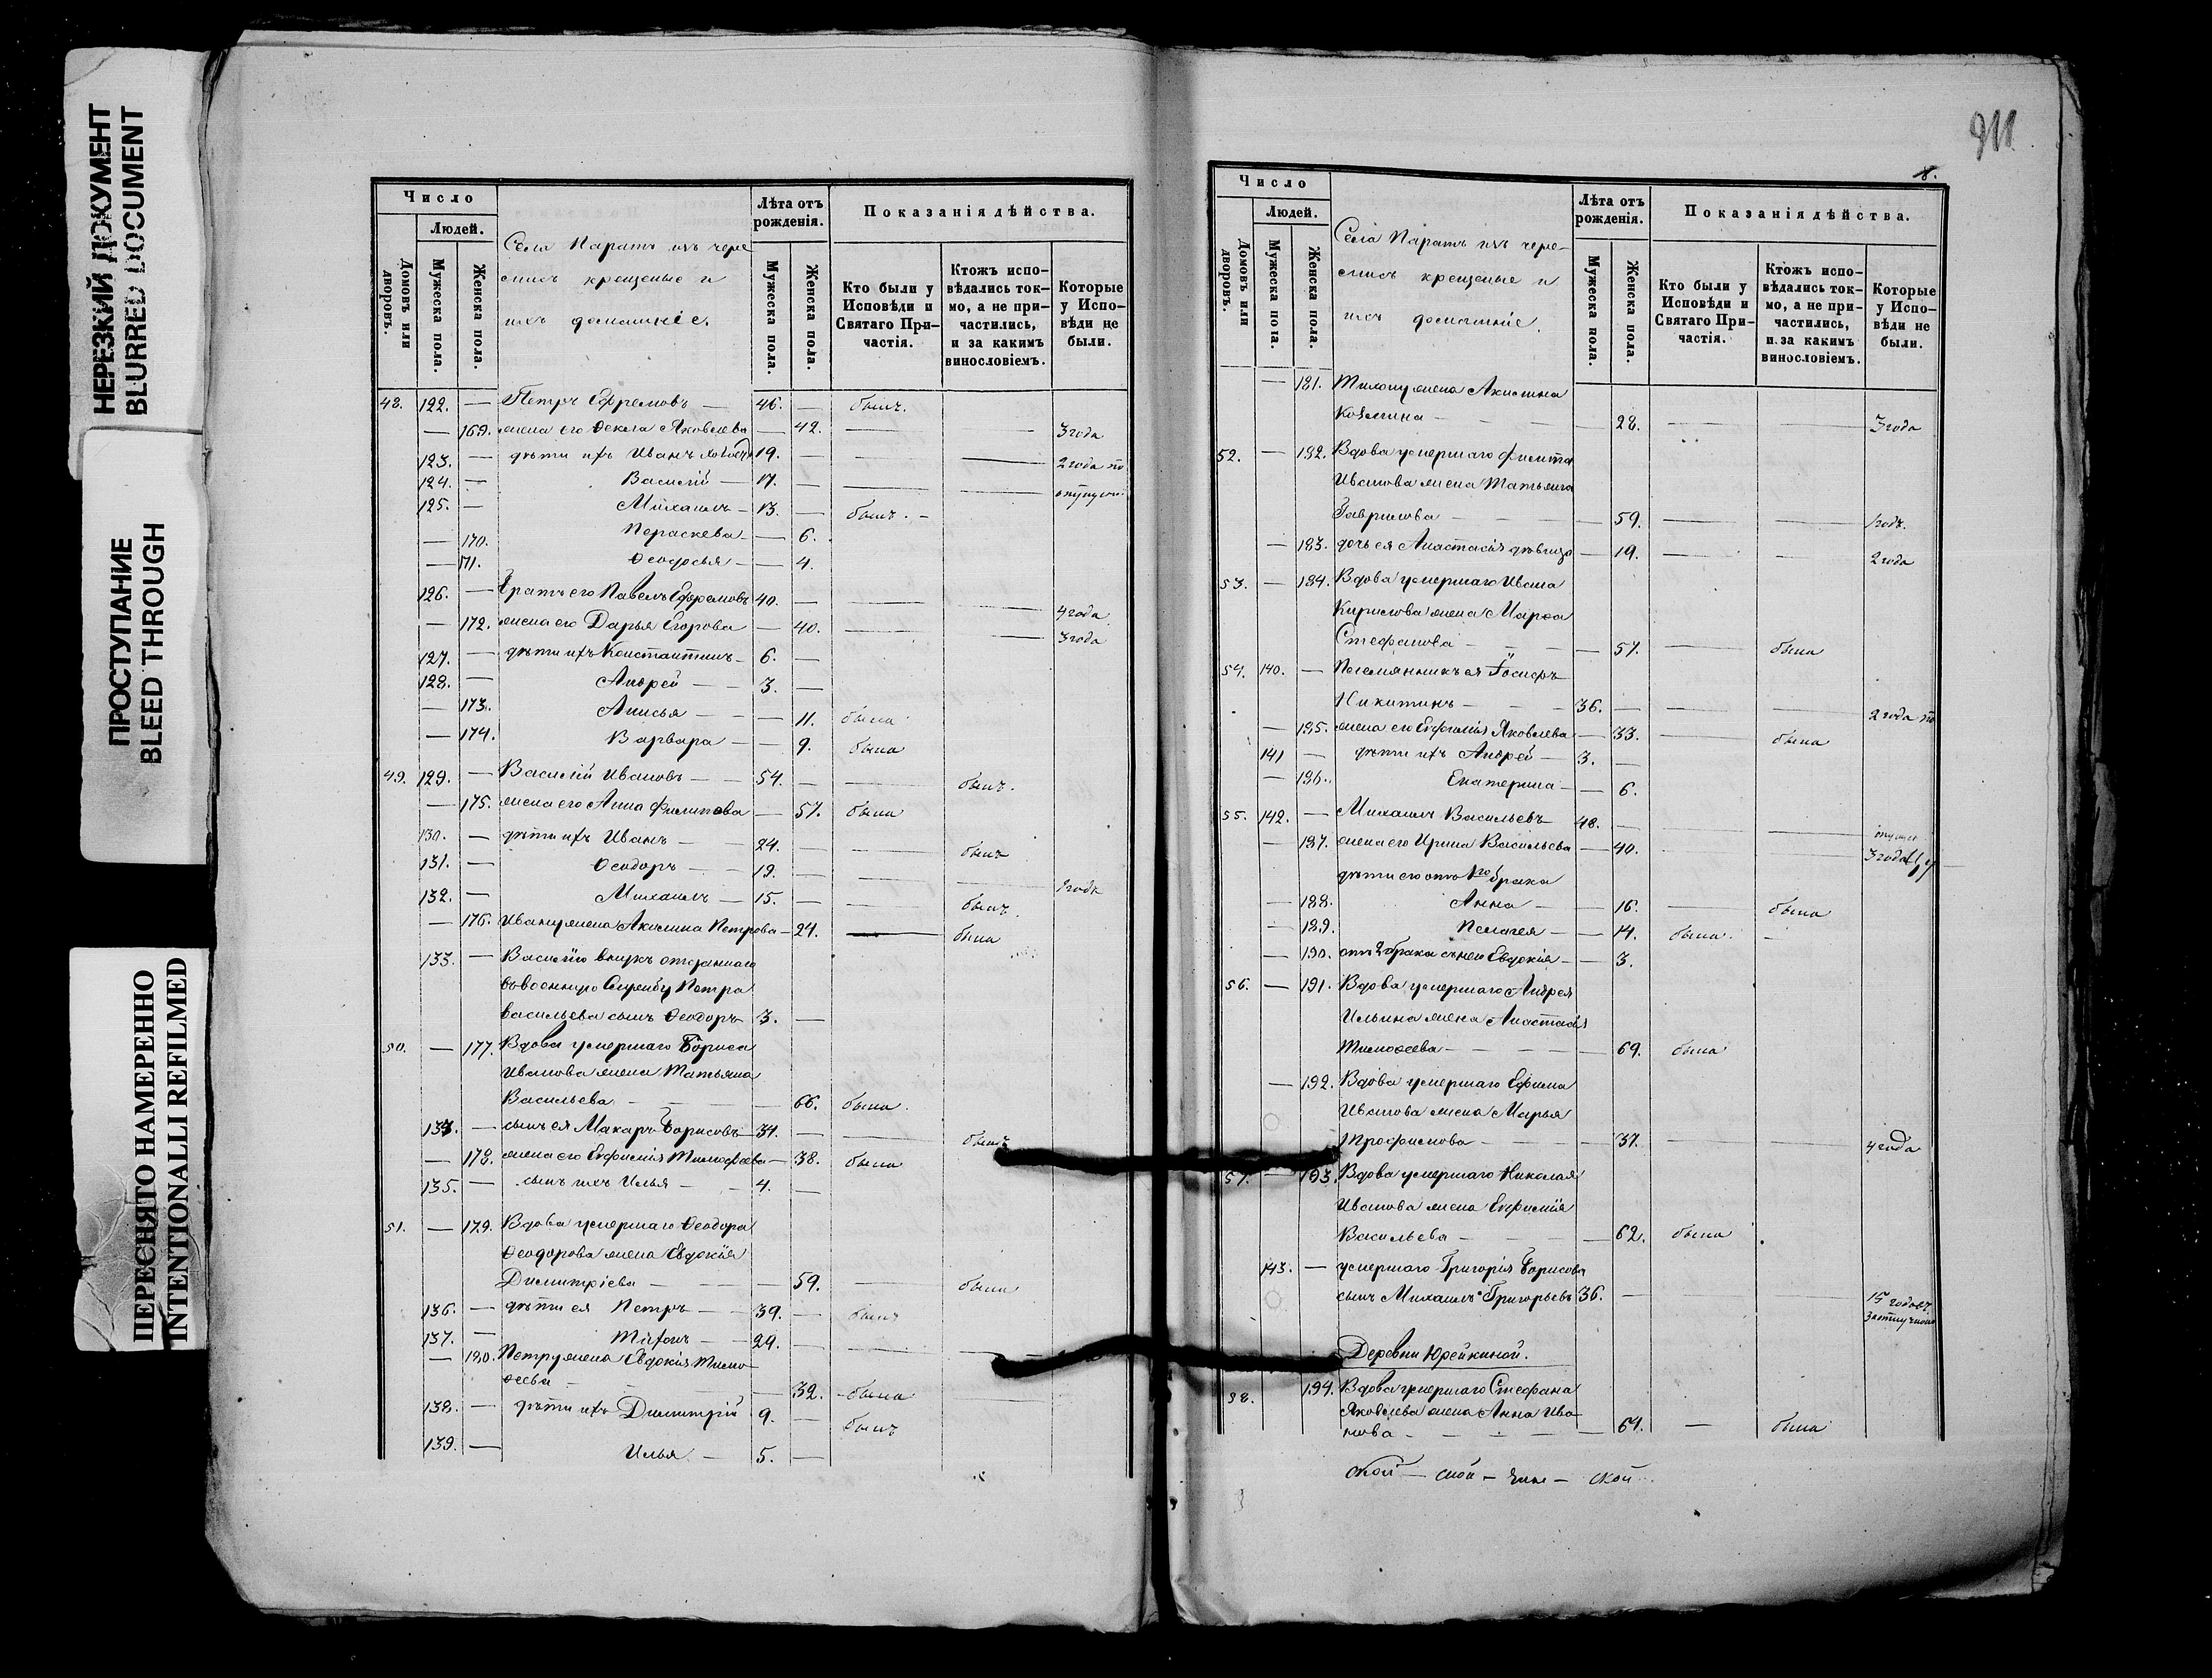 НЕРЕЗКИЙ ДОКУМЕНТ
BLURRED DOCUMENT
ПРОСТУПАНИЕ
BLEED THROUGH
ПЕРЕСНЯТО НАМЕРЕННО
INTENTIONALLI REFILMED
Число
Людей.
Домовъ или дворовъ.
Мужеска пола.
Женска пола.
Села Паратъ изъ чере
мисъ крещеные и
ихъ домашніе.
Лѣта отъ рожденія.
Мужеска пола.
Женска пола.
Показанія дѣйства.
Кто были у Исповѣди и Святаго При-частія.
Ктожъ испо-вѣдались ток-мо, а не при-частились, и за какимъ винословіемъ.
Которые у Испо-вѣди не были.
48. 122. — Петръ Ефремовъ — 46. — былъ.
— 169. жена его Ѳекла Яковлева — 42. — — 3 года
123. — дѣти ихъ Иванъ 19. — — — 2 года по
124. — Василій — 17. — — — опущен
125. — Михаилъ — 13. — былъ. —
— 170. Параскева — — 6.
— 171. Ѳеодосья — — 4.
126. — Братъ его Павелъ Ефремовъ 40. — — — 4 года
— 172. жена его Дарья Егорова — 40. — — 3 года
127. — дѣти ихъ Константинъ — 6. —
128. — Андрей — — 3. —
— 173. Анисья — — — 11. была
— 174. Варвара — — 9. была
49. 129. — Василій Ивановъ — — 54. — — былъ.
— 175. жена его Анна Филипова — 57. была
130. — дѣти ихъ Иванъ — — 24. — — былъ
131. — Ѳеодоръ — — 19. — — — 2 года
132. — Михаилъ — 15. — — былъ.
— 176. Ивану жена Акилина Петрова — 24. — была
133. — Василію внукъ отданнаго
въ военную Службу Петра
Васильева сынъ Ѳеодоръ 3. —
50. — 177. Вдова умершаго Бориса
Иванова жена Татьяна
Васильева — — — 66. была.
134. — сынъ ея Макаръ Борисовъ — 31. — — былъ
— 178. жена его Евфимія Тимофеева — 38. была
135. — сынъ ихъ Илья — — 4. —
51. — 179. Вдова умершаго Ѳеодора
Ѳеодорова жена Евдокія
Димитріева — — — — 59. — была
136. — дѣти ея Петръ — — 39. — былъ
137. — Тихонъ — — 29. — — —
— 180. Петру жена Евдокія Тимо—
ѳеева — — — 32. — была
138. — дѣти ихъ Димитрій 9. — былъ
139. — Илья — 5. —
911
8.
Число
Людей.
Домовъ или дворовъ.
Мужеска пола.
Женска пола.
Села Паратъ изъ чере—
мисъ крещеные и
ихъ домашніе.
Лѣта отъ рожденія.
Мужеска пола.
Женска пола.
Показанія дѣйства.
Кто были у Исповѣди и Святаго При-частія.
Ктожъ испо-вѣдались ток-мо, а не при-частились, и за какимъ винословіемъ.
Которые у Испо-вѣди не были.
— 181. Тихону жена Акилина
Козмина — — — — 28. — — 3 года
52. — 182. Вдова умершаго Филипа
Иванова жена Татьяна
Гаврилова — — — — 59. — — 1 годъ.
— 183. дочь ея Анастасія дѣвица — 19. — — 2 года
53. — 184. Вдова умершаго Ивана
Кирилова жена Марѳа
Стефанова — — — 57. — была
54. 140. — Племянникъ ея Іосифъ
Никитинъ — — — 36. — — — 2 года по
— 185. жена его Евфимія Яковлева — 33. — была
141 — дѣти ихъ Андрей — 3. —
— 186. Екатерина — — 6.
55. 142. — Михаилъ Васильевъ 48. — — — опущен
— 187. жена его Ирина Васильева — 40. — — 3 года
дѣти его отъ 1го брака
— 188. Анна — — 16. — была
— 189. Пелагея — — 14. была. —
— 190. отъ 2 брака съ нею Евдокія — — 3.
56. — 191. Вдова умершаго Андрея
Ильина жена Анастасія
Тимоѳеева — — — — 69. была
— 192. Вдова умершаго Ефима
Иванова жена Марья
Трофимова — — — — 37. — — 4 года
57. — 193. Вдова умершаго Николая
Иванова жена Евфимія
Васильева — — — — 62. была
143. — умершаго Григорія Борисова
сынъ Михаилъ Григорьевъ 36. — — — 15 годовъ.
Деревни Юрейкиной.
58. 194. Вдова умершаго Стефана
Яковлева жена Анна Ива—
нова — — — — — 61. — была